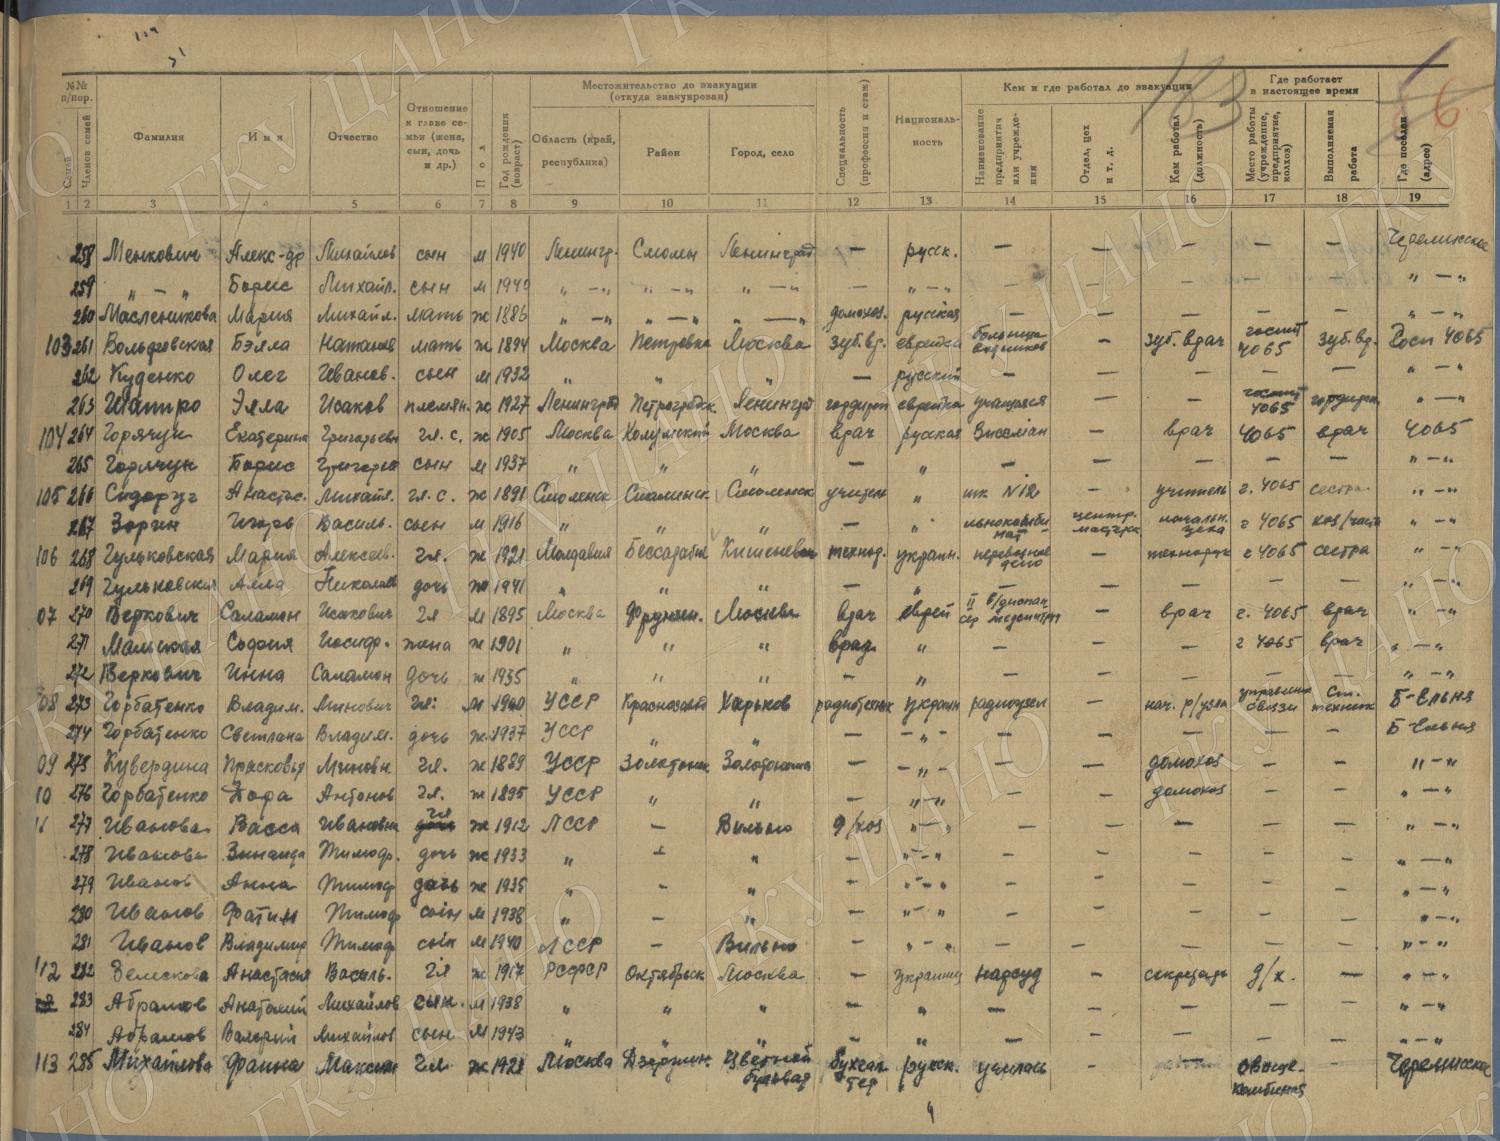 183
66
№№ п/пор.
Семей
Членов семей
Фамилия
Имя
Отчество
Отношение к главе семьи (жена, сын, дочь и др.)
Пол
Год рождения (возраст)
Местожительство до эвакуации (откуда эвакуирован)
Область (край, республика)
Район
Город, село
Специальность (профессия и стаж)
Националь-ность
Кем и где работал до эвакуации
Наименование предприятия или учрежде-ния
Отдел, цех и т. д.
Кем работал (должность)
Где работает в настоящее время
Место работы (учреждение, предприятие, колхоз)
Выполняемая работа
Где поселен (адрес)
1 2 3 4 5 6 7 8 9 10 11 12 13 14 15 16 17 18 19
258 Менкович Алекс-др Михайлов сын м 1940 Ленингр. Смольн Ленинград — русск. — — — — —
259 „ — „ Борис Михайл. сын м 1940 „ — „ „ — „ „ — „ — „ — „ — — — — — „ — „
260 Масленикова Мария Михайл. мать ж 1886 „ — „ „ — „ „ — „ домохоз. русская — — — — — „ — „
103 261 Вольфовская Бэлла мать ж 1894 Москва Петровка Москва зуб. вр. еврейка больница водников — зуб. врач госпит 4065 зуб. вр. Госп 4065
262 Куденко Олег Иванов. сын м 1932 „ „ „ — русский — — — — — „ — „
263 Шапиро Элла Исаков племян. ж 1927 Ленинград Петроградск Ленинград еврейка учащаяся — — госпит 4065 „ — „
104 264 Горячун Екатерина Григорьевн гл. с. ж 1905 Москва Москва врач русская — врач 4065 врач 4065
265 Горячун Борис Григорьев сын м 1937 „ „ „ — „ — — — — — „ — „
105 266 Анастас. Михайл. гл. с. ж 1891 Смоленск Сталинск Смоленск учител „ шк N 12 — учитель г. 4065 сестра „ — „
267 Зорин Игорь Василь. сын м 1916 „ „ „ — „ льнокомби нат центр. мастерск начальн. цеха г 4065 хоз/часть „ — „
106 268 Гульковская Мария Алексеев. гл. ж 1921 Молдавия Бессарабия Кишенев технор. украин. — технорук г 4065 сестра „ — „
269 Гульковская Алла Николаев дочь ж 1941 „ „ „ — „ — — — — — „ — „
07 270 Веркович Саламон Исакович гл м 1895 Москва Фрунзен. Москва врач еврей — врач г. 4065 врач „ — „
271 София Иосиф. жена ж 1901 „ „ „ врач „ — — — г 4065 врач „ — „
272 Веркович Инна Саламон дочь ж 1935 „ „ „ — „ — — — — — „ — „
08 273 Горбатенко Владим. Минович гл. м 1900 УССР Краснозавод Харьков радиотехник украин радиоузел — нач. р/узла управление связи ст. техник Б-Ельня
274 Горбатенко Светлана Владим. дочь ж 1937 УССР „ „ — — „ — — — — — — Б-Ельня
09 275 Кувердина Прасковья Миновн. гл. ж 1889 УССР Золотонш Золотоноша — — „ — — — домохоз — — „ — „
10 276 Горбатенко Антонов гл. ж 1895 УССР „ „ — „ — „ — — домохоз — — „ — „
11 277 Иванова Васса Ивановна гл ж 1912 ЛССР — Вильно д/хоз „ — „ — — — — — „ — „
278 Иванова Зинаида Тимоф. дочь ж 1933 „ — „ — „ — „ — — — — — „ — „
279 Иванов Анна Тимоф дочь ж 1935 „ — „ — „ — „ — — — — — „ — „
280 Иванов Фатин Тимоф сын м 1938 „ — „ — „ — „ — — — — — „ — „
281 Иванов Владимир Тимоф сын м 1940 ЛССР — Вильно — „ — „ — — — — — „ — „
112 282 Анастасия Василь. гл ж 1917 РСФСР Октябрьск Москва — украинц нарсуд — секретарь д/х. — „ — „
283 Абрамов Анатолий Михайлов сын. м 1938 „ „ „ — „ — — — — — „ — „
284 Абрамов Валерий Михайлов сын м 1943 „ „ „ — „ — — — „ — „
113 285 Михайлова Фаина Максим гл ж 1921 Москва Дзержин. Цветной бульвар бухгал тер русск. училась — овоще-комбинат
ГКУ ЦАНО